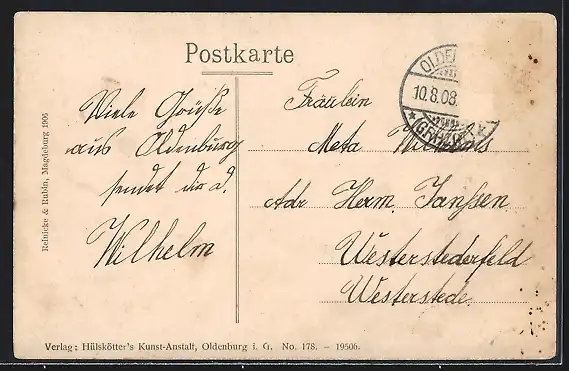 Postkarte
Viele Grüße
aus Oldenburg
sendet dir d.
Wilhelm
Fräulein
Meta
Adr. Herm. Janssen
Westerstederfeld
Westerstede.
OLDEN
10.8.08.
* (GRHZGT) *
Reinicke & Rubin, Magdeburg 1906
Verlag: Hülskötter's Kunst-Anstalt, Oldenburg i. G. No. 178. – 19506.